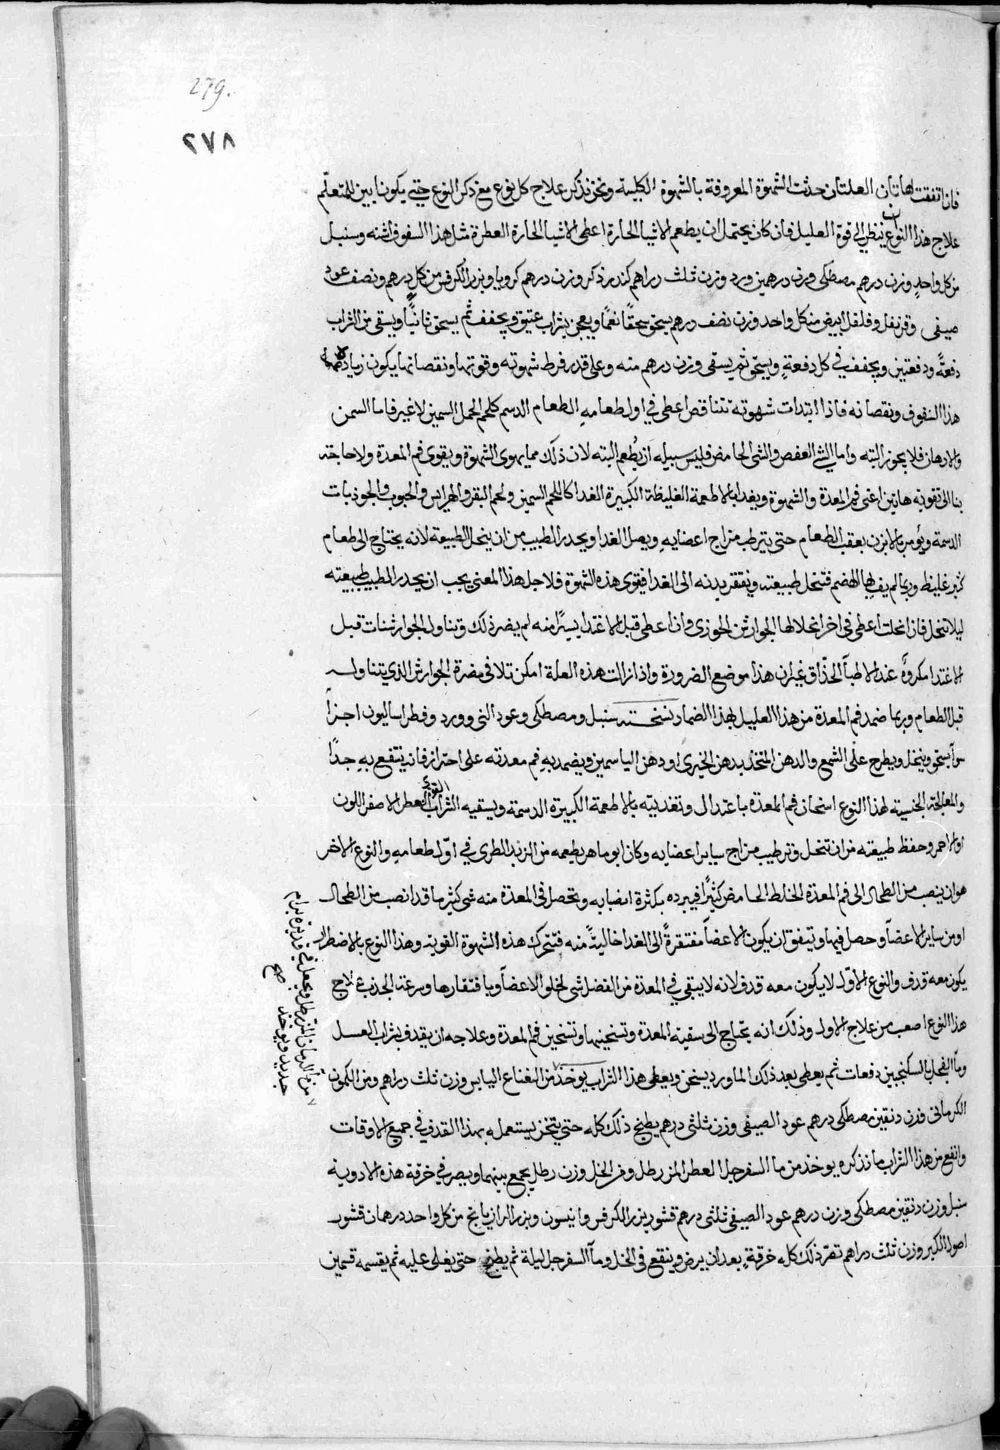 279.
٢٧٨
فان اتفقت هاتان العلتان حدثت الشهوة المعروفة بالشهوة الكلبية ونحن نذكر علاج كل نوع مع ذكر النوع حتى يكونا بين للمتعلم
علاج هذا النوع ان ينظر الى قوة العليل فان كان يحتمل ان يطعم الاشيا الحارة اعطى الاشيا الحارة العطرة مثل هذا السفوف اشنه وسنبل
من كل واحد وزن درهم مصطكى وزن درهمين ورد وزن ثلث دراهم كندر ذكر وزن درهم كرويا وبزر الكرفس من كل درهم ونصف عود
صيفى وقرنفل وفلفل ابيض من كل واحد وزن نصف درهم يسحق سحقا نعما ويعجن بشراب عتيق ويجفف ثم يسحق ثانيا ويسقى من الشراب
دفعة ودفعتين ويجفف في كل دفعة ويسحق ثم يسقى وزن درهم منه وعلى قدر فرط شهوته وقوتها ونقصانها يكون زيادة
هذا السفوف ونقصانه فاذا ابتدات شهوته تتناقص اعطى في اول طعامه الطعام الدسم كلحم الحمل السمين لا غير فاما السمن
والادهان فلا يجوز البته واما الشى العفص والشى الحامض فليس سبيله ان يطعم البته لان ذلك مما يهوى الشهوة ويقوى فم المعدة ولا حاجة
بنا الى تقوية هاتين اعنى فم المعدة والشهوة ويغدا بالاطعمة الغليظة الكبيرة الغدا كاللحم السمين ولحم البقر والهرايس والحبوب والجوذبات
الدسمة ويؤمر بالابزن بعقب الطعام حتى يترطب مزاج اعضايه ويصل الغدا ويحدر الطبيب من ان ينحل الطبيعة لانه يحتاج الى طعام
كثير غليظ وربما لم يف بها الهضم فتنحل طبيعته ويفتقر بدنه الى الغدا فتقوى هذه الشهوة فلاجل هذا المعنى يجب ان يحدر الطبيب طبيعته
ليلا تنحل فاذا انحلت اعطى في اخر انحلالها الجوارشن الخوزى وان اعطى قبل الاغتدا يسيرا منه لم يضر ذلك وتناول الجوارشنات قبل
الاغتدا مكروه عند الاطبا الحذاق غير ان هذا موضع الضرورة واذا زالت هذه العلة امكن تلافى مضرة الجوارشن الذى يتناوله
قبل الطعام وربما ضمد فم المعدة من هذا العليل بهذا الضماد نسخته سنبل ومصطكى وعود النى وورد وفطراساليون اجزا
سوا يسحق وينخل ويطرح على الشمع والدهن المتخذ بدهن الخيرى او دهن الياسمين ويضمد به فم معدته على احتراز فانه ينتفع به جدا
والمعالجة الجنسية لهذا النوع اسخان فم المعدة باعتدال وتغذيته بالاطعمة الكبيرة الدسمة ويسقيه الشراب القوى العطر الاصفر اللون
او الاحمر وحفظ طبيعته من ان تنحل وترطيب مزاج ساير اعضايه وكان ابو ماهر يطعمه من الزبد الطرى في اول طعامه والنوع الاخر
هو ان ينصب من الطحال الى فم المعدة الخلط الحامض كثيرا فيبرده بكثرة انصبابه ويحصل في المعدة منه شى كثير ما قد انصب من الطحال
او من ساير الاعضا وحصل فيها ويتفق ان يكون الاعضا مفتقرة الى الغدا خالية منه فتتحرك هذه الشهوة القوية وهذا النوع بالاضطرار
يكون معه قدف والنوع الاول لا يكون معه قدف لانه لا يبقى في المعدة من الفضل شى لخلو الاعضا وبافتقارها وسرعة الجذب علاج
هذا النوع اصعب من علاج الاول وذلك انه يحتاج الى تنقية المعدة وتسخينها وتسخين فم المعدة وعلاجه ان يقدف بشراب العسل
وما الفجل والسكنجبين دفعات ثم يعطى بعد ذلك الماورد يسخن ويعطى هذا الشراب يوخذ من النعناع اليابس وزن ثلث دراهم ومن الكمون
الكرمانى وزن دنقين مصطكى درهم عود الصيفى وزن ثلثى درهم يطبخ ذلك كله حتى يتخن يستعمله بهذا القدف في جميع الاوقات
وانفع من هذا الشراب ما نذكره يوخذ من ما السفرجل العطر المز رطل ومن الخل وزن رطل يجمع بينهما ويصر في خرقة هذه الادوية
سنبل وزن دنقين مصطكى وزن درهم عود الصيفى ثلثى درهم قشور بزر الكرفس وانيسون وبزر الرازيانج من كل واحد درهمان قشور
اصول الكبر وزن ثلث دراهم تقر ذلك كله خرقة بعد ان يرض وينقع في الخل وما السفرجل ليلة ثم يطبخ حتى يغلى عليه ثم يقسمه قسمين
من ما الرمان المز رطل ويجعل في قدر برام
جديد ويوخذ صح